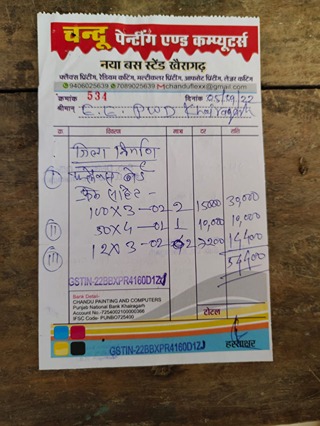 चन्दू पेन्टींग एण्ड कम्प्यूटर्स
नया बस स्टैंड खैरागढ़
फ्लैक्स प्रिंटिंग, रेडियम कटिंग, मल्टीकलर प्रिंटिंग, आफसेट प्रिंटिंग, लेजर कटिंग
9406025639 7089025639 chanduflexx@gmail.com
क्रमांक 534 दिनांक 05/09/22
श्रीमान E.E PWD Khairagarh
क्र. विवरण मात्रा दर राशि
जिला निर्माण
फ्लेक्स बोर्ड
100X3-02 2 15000 30,000
50X4-02 1 10,000 10,000
12X3-02 2 7200 14400
54400
GSTIN-22BBXPR4160D1ZJ
Bank Detail:
CHANDU PAINTING AND COMPUTERS
Punjab National Bank Khairagarh
Account No.-7254002100000366
IFSC Code: PUNBO725400
टोटल
GSTIN-22BBXPR4160D1ZJ
हस्ताक्षर